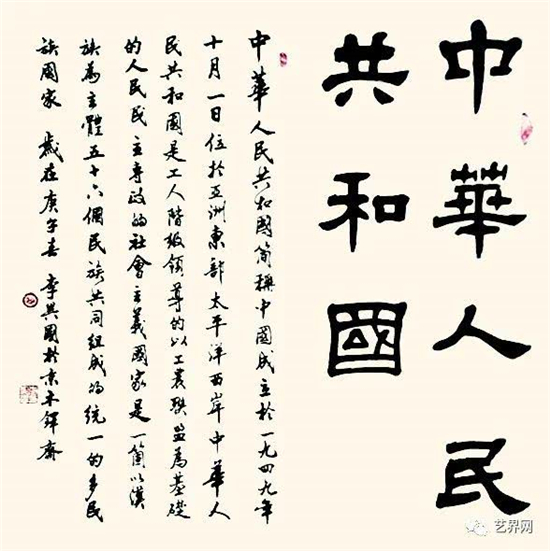 中華人民
共和國
中華人民共和國简稱中國成立於一九四九年
十月一日位於亞洲東部太平洋西岸中華人
民共和國是工人階級領導的以工農聯盟為基礎
的人民民主專政的社會主義國家是一箇以漢
族為主體五十六個民族共同組成的統一的多民
族國家 歲在庚子春 李興國於京木鐸齋
艺界网